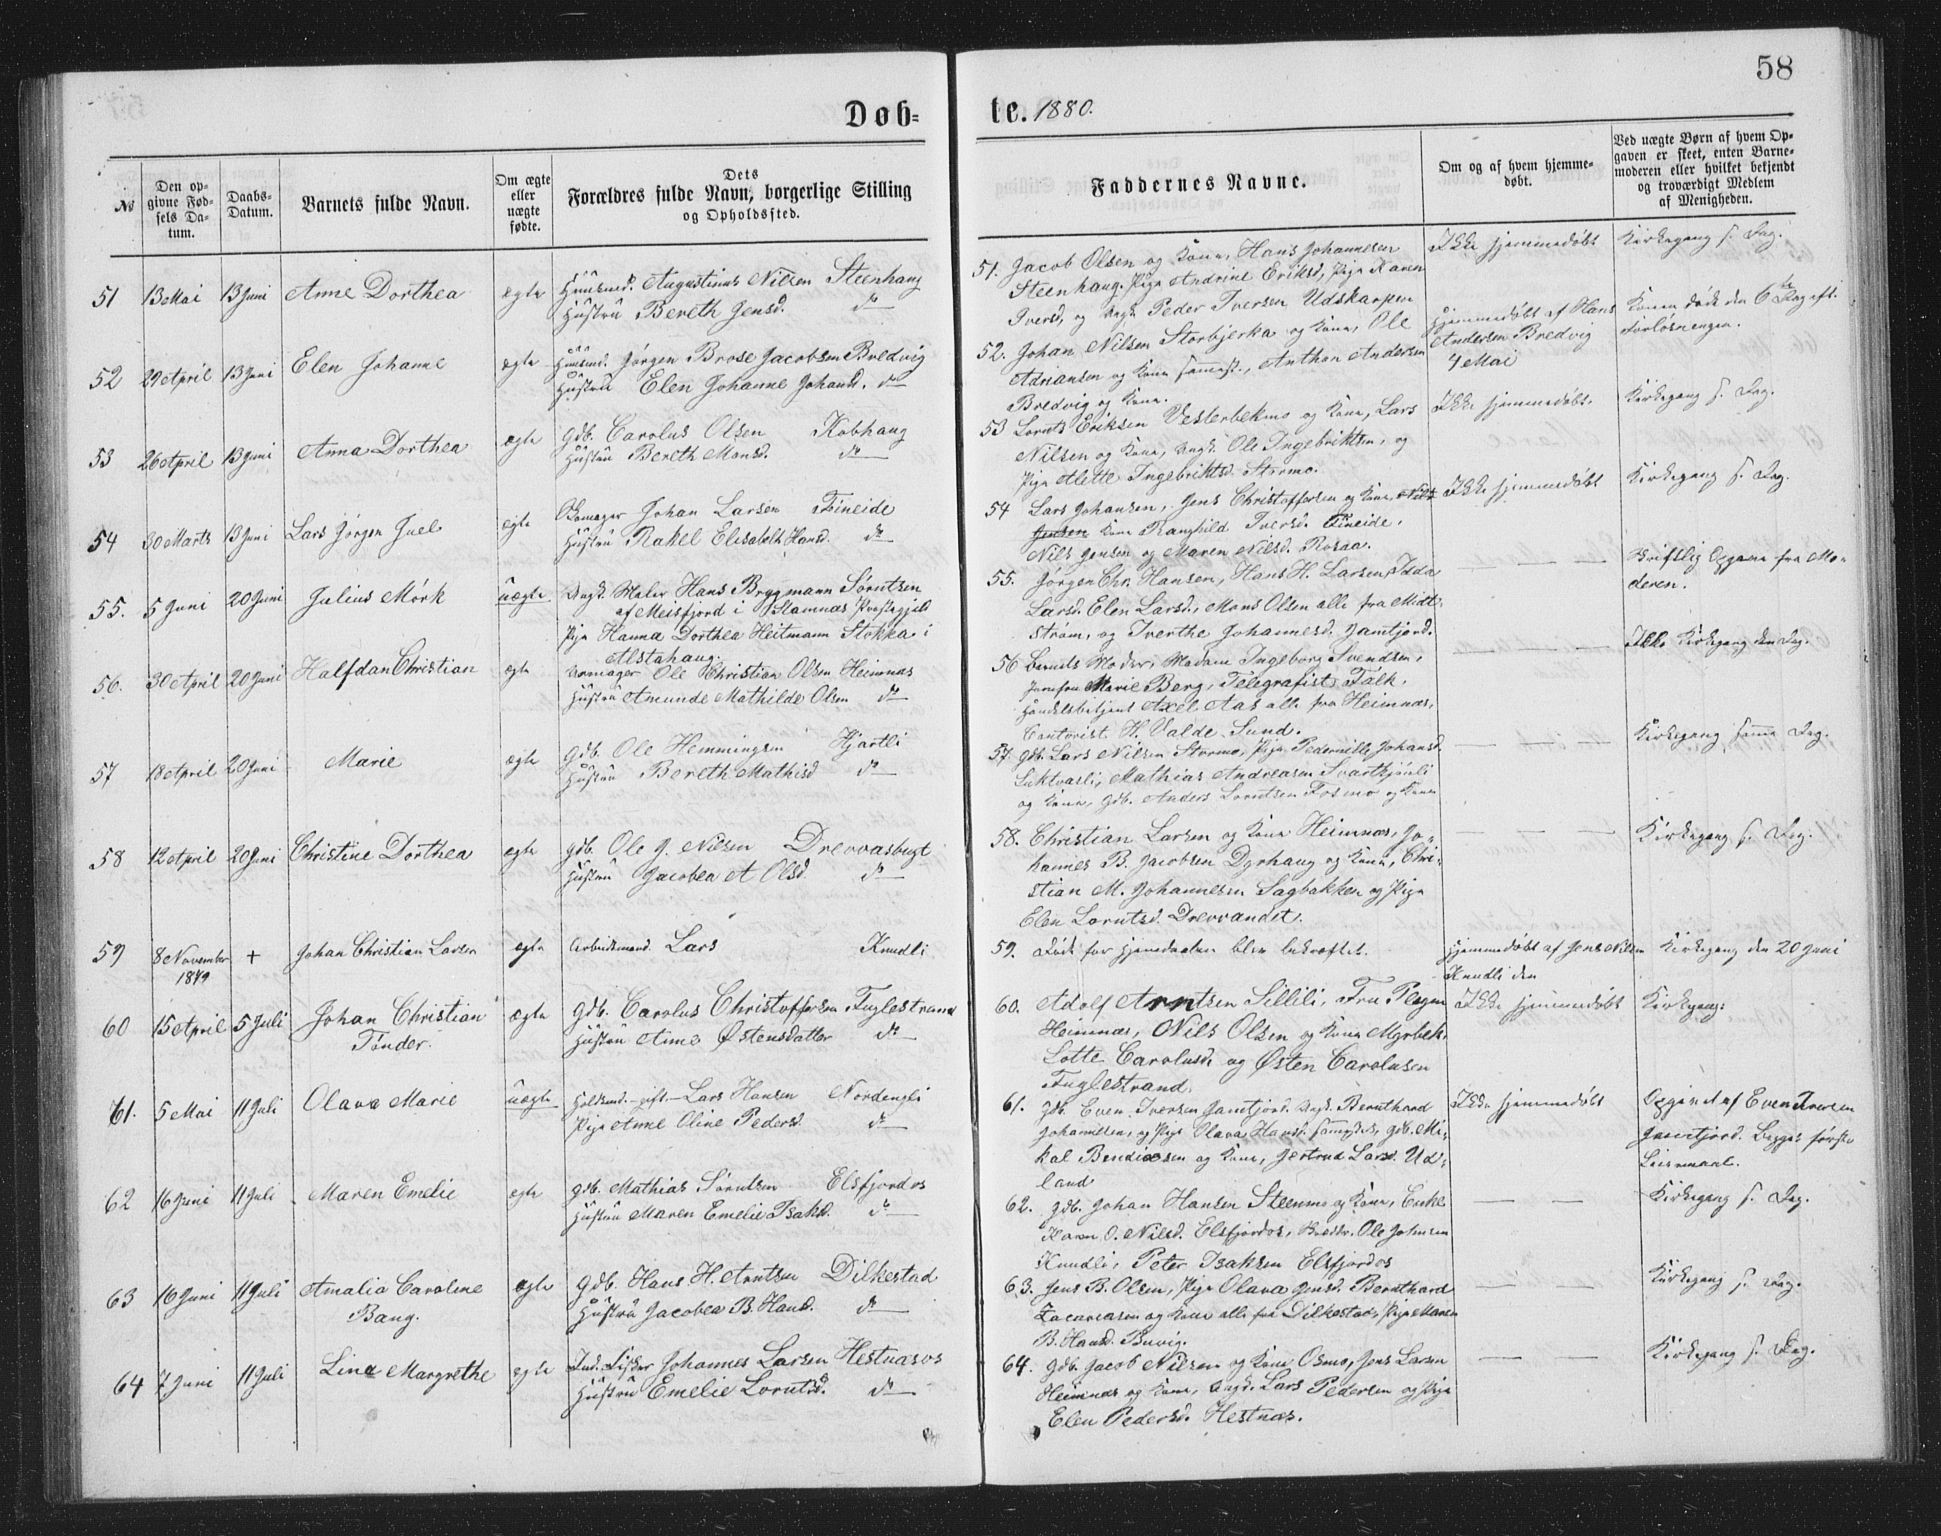 58
Døb=
te. 1880.
№
Den op=
givne Fød=
sels Da=
tum.
Daabs=
Datum.
Barnets fulde Navn.
Om ægte
eller
uægte
fødte.
Dets
Forældres fulde Navn, borgerlige Stilling
og Opholdssted.
Faddernes Navne.
Om og af hvem hjemme=
døbt.
Ved uægte Børn af hvem Op=
gaven er skeet, enten Barne=
moderen eller hvilket bekjendt
og troværdigt Medlem
af Menigheden.
51 13 Mai 13 Juni Anne Dorthea ægte Huusmd. Augustinus Nilsen Steenhaug
Hustru Bereth Jensd. do
51. Jacob Olsen og Kone, Hans Johannesen
Steenhaug, Pige Andrine Eriksd, Pige Karen
Iversd, og Ungk. Peder Iversen Udskarpen
Ikke hjemmedøbt
Kirkegang s. Dag.
52 29 April 13 Juni Elen Johanne ægte Huusmd. Jørgen Brose Jacobsen Bredvig
Hustru Elen Johanne Johansd. do
52. Johan Nilsen Storbjerka og Kone, Ole
Adriansen og Kone samest., Anthon Andersen
Bredvig og Kone.
Hjemmedøbt af Hans
Andersen Bredvig
4 Mai
Konen døde den 6te Dag eft.
Forløsningen.
53 26 April 13 Juni Anna Dorthea ægte Gdb. Carolus Olsen Kobhaug
Hustru Bereth Monsd. do
53 Lornts Eriksen Vesterbekmo og Kone, Lars
Nilsen og Kone, Ungk. Ole Ingebriktsen, og
Pige Alette Ingebriktsd. Stormo.
Ikke hjemmedøbt.
Kirkegang s. Dag.
54 30 Marts 13 Juni Lars Jørgen Juel ægte Skomager Johan Larsen Fineide
Hustru Rakel Elisabeth Hansd. do
54 Lars Johansen, Jens Christoffersen og Kone, Nils
Jensen Kone Ranghild Iversd. Fineide,
Nils Jensen og Maren Nilsd. Rosaa.
Ikke hjemmedøbt
Kirkegang s. Dag.
55. 5 Juni 20 Juni Julius Mörk uægte Ungk. Maler Hans Bryymann Sørutsen
af Meisfjord i Stamnæs Præstegjeld
Pige Hanna Dorthea Heitmann Stokka i
Alstahaug.
55. Jørgen Chr. Hansen, Hans H. Larsen, Idda
Larsd. Elen Larsd., Mons Olsen alle fra Midt
strøm, og Iverthe Johannesd. Jamtjord.
Skriftlig Opgave fra Mo=
deren.
56. 30 April 20 Juni Halfdan Christian ægte Urmager Ole Christian Olsen Heimnæs
Hustru Amunde Mathilde Olsen do
56 Barnets Moder, Madam Ingeborg Svendsen,
Jomfru Marie Berg, Telegrafist Falk,
Handelsbetjent Axel Aas alle fra Heimnæs,
Contorist H. Valde, Sund.
Ikke Kirkegang den Dag.
57 18 April 20 Juni Marie ægte Gdb. Ole Hemmingsen Hjartli
Hustru Bereth Mathisd do
57. Gdb. Lars Nilsen Stormo, Pige Pedernille Johansd.
Luktvasli, Mathias Andreasen Svartkjønli
og Kone, Gdb. Anders Lorntsen Fosmo og Kone
Kirkegang samme Dag.
58 12 April 20 Juni Christine Dorthea ægte Gdb. Ole J. Nilsen Drevvasbugt
Hustru Jacobea A Olsd do
58. Christian Larsen og Kone Heimnæs, Jo=
hannes B. Jacobsen Dyrhaug og Kone, Chri=
stian M. Johannesen Sagbakken og Pige
Elen Lorntsd. Drevvandet.
Kirkegang s. Dag.
59 8 November + Johan Christian Larsen ægte Arbeidsmand Lars Knudli
1879
59. Døde før Hjemmedaaben blev bekræftet.
Hjemmedøbt af Jens Nilsen
Knudli den
Kirkegang den 20 Juni
60 15 April 5 Juli Johan Christian ægte Gdb. Carolus Christoffersen Fuglestrand
Tønder. Hustru Anne Østensdatter do
60. Adolf Arntsen Sillili, Fru Plagen
Heimnæs, Nils Olsen og Kone Myrbek,
Lotte Carolusd. og Østen Carolusen
Fuglestrand.
Ikke hjemmedøbt
Kirkegang:
61. 5 Mai 11 Juli Olava Marie uægte Holdsmd. — gift — Lars Hansen Nordengli
Pige Anne Oline Pedersd. do
61. Gdb. Even Iversen Jamtjord. Ungk. Bernthard
Johannesen, og Pige Olava Hansd. samesteds, Gdb. Mi=
kal Bendixsen og Kone, Gjertrud Larsd. Ud=
land
Ikke hjemmedøbt
Opgivet af Even Iversen
Jamtjord. Begges første
Leiermaal.
62 16 Juni 11 Juli Maren Emelie ægte Gdb. Mathias Sørutsen Elsfjordos
Hustru Maren Emelie Isaksd. do
62. Gdb. Johan Hansen Steenmo og Kone, Enke
Karen O. Nilsd. Elsfjordos, Ole Johnsen
Knudli, Peter Isaksen Elsfjordos
Kirkegang s. Dag.
63 16 Juni 11 Juli Amalia Caroline ægte Gdb. Hans H. Arntsen Dilkestad
Bang. Hustru Jacobea B. Hansd. do
63. Jens B. Olsen, Pige Olava Jensd. Bernthard
Zacariasen og Kone alle fra Dilkestad, Pige Maren
B. Hansd. Buvig.
Kirkegang s. Dag.
64 7 Juni 11 Juli Lina Margrethe ægte Ind. Fisker Johannes Larsen Hestnæsos
Hustru Emelie Lorntsd. do
64. Gdb. Jacob Nilsen og Kone Osmo, Jens Larsen
Heimnæs og Kone, Ungk. Lars Pedersen og Pige
Elen Pedersd. Hestnæs.
Kirkegang s. Dag.